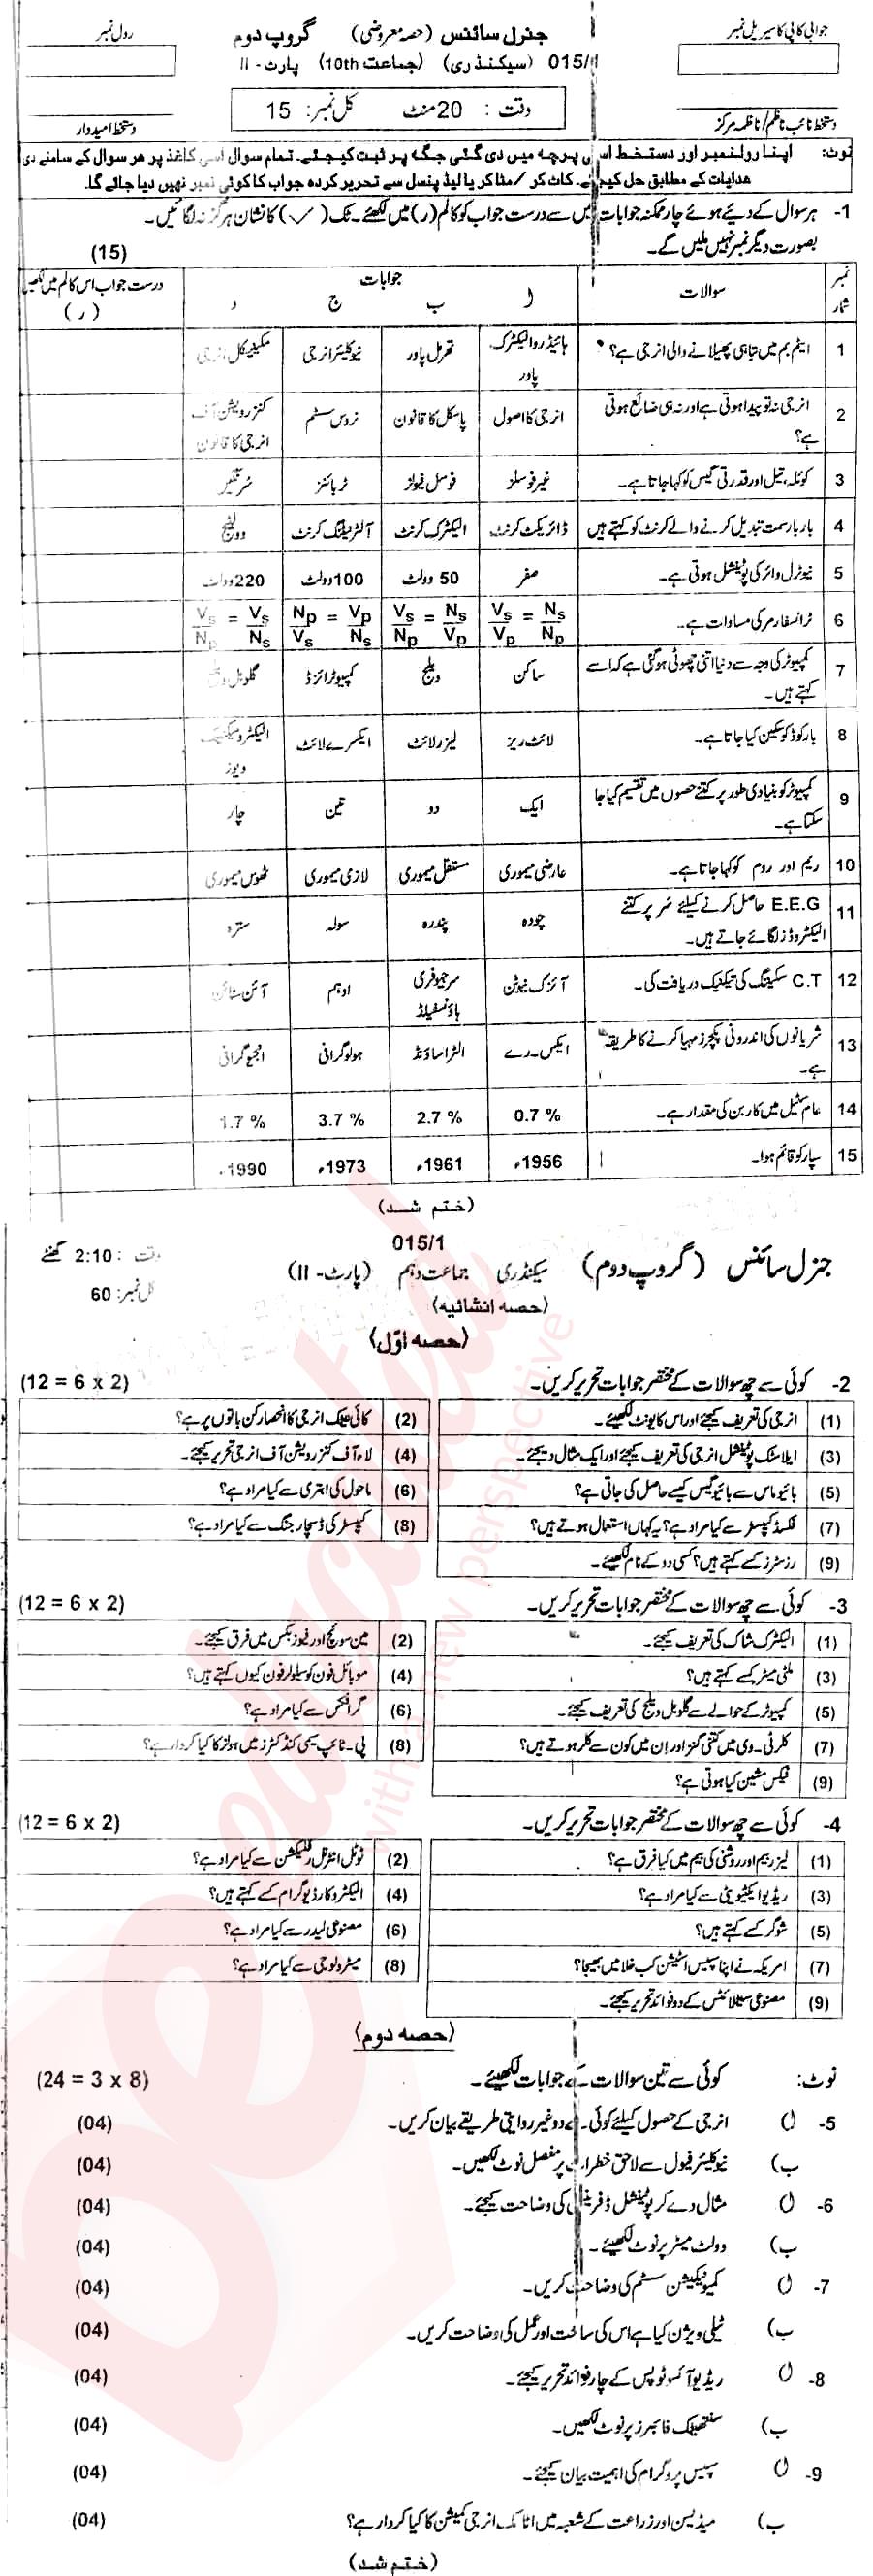 جوابی کاپی کا سیریل نمبر
جنرل سائنس (حصہ معروضی) گروپ دوم
رول نمبر
015/1 (سیکنڈری) (جماعت 10th) پارٹ - II
وقت : 20 منٹ کل نمبر: 15
دستخط نائب ناظم/ناظمہ مرکز
دستخط امیدوار
نوٹ: اپنا رولنمبر اور دستخط اس پرچہ میں دی گئی جگہ پر ثبت کیجئے۔ تمام سوال اسی کاغذ پر ہر سوال کے سامنے دی
ہدایات کے مطابق حل کیجئے۔ کاٹ کر / مٹا کر یا لیڈ پنسل سے تحریر کردہ جواب کا کوئی نمبر نہیں دیا جائے گا۔
1- ہر سوال کے دیئے ہوئے چار ممکنہ جوابات میں سے درست جواب کو کالم (ر) میں لکھئے۔ ٹک (✓) کا نشان ہرگز نہ لگائیں۔
بصورت دیگر نمبر نہیں ملیں گے۔ (15)
نمبر شمار سوالات جوابات درست جواب اس کالم میں لکھیں
ا ب ج د (ر)
1 ایٹم بم میں تباہی پھیلانے والی انرجی ہے؟ ہائیڈرو الیکٹرک پاور تھرمل پاور نیوکلیئر انرجی مکینیکل انرجی
2 انرجی نہ تو پیدا ہوتی ہے اور نہ ہی ضائع ہوتی ہے؟ انرجی کا اصول پاسکل کا قانون نروس سسٹم کنزرویشن آف انرجی کا قانون
3 کوئلہ، تیل اور قدرتی گیس کو کہا جاتا ہے۔ غیر فوسلز فوسل فیولز ٹربائنز
4 بار بار سمت تبدیل کرنے والے کرنٹ کو کہتے ہیں ڈائریکٹ کرنٹ الیکٹرک کرنٹ آلٹرنیٹنگ کرنٹ وولٹیج
5 نیوٹرل وائر کی پوٹینشل ہوتی ہے۔ صفر 50 وولٹ 100 وولٹ 220 وولٹ
6 ٹرانسفارمر کی مساوات ہے۔ Vs/Vp = Ns/Np Vs/Np = Ns/Vp Np/Vs = Vp/Ns Vs/Np = Vs/Ns
7 کمپیوٹر کی وجہ سے دنیا اتنی چھوٹی ہو گئی ہے کہ اسے کہتے ہیں۔ ساکن ویلج کمپیوٹرائزڈ گلوبل ویلج
8 بار کوڈ کو سکین کیا جاتا ہے۔ لائٹ ریز لیزر لائٹ ایکسرے لائٹ الیکٹرو میگنیٹک ویوز
9 کمپیوٹر کو بنیادی طور پر کتنے حصوں میں تقسیم کیا جا سکتا ہے۔ ایک دو تین چار
10 ریم اور روم کو کہا جاتا ہے۔ عارضی میموری مستقل میموری لازمی میموری ٹھوس میموری
11 E.E.G حاصل کرنے کیلئے سر پر کتنے الیکٹروڈز لگائے جاتے ہیں۔ چودہ پندرہ سولہ سترہ
12 C.T سکیننگ کی تیکنیک دریافت کی۔ آئزک نیوٹن سر جیوفری ہاؤنسفیلڈ اوہم آئن سٹائن
13 شریانوں کی اندرونی پکچرز مہیا کرنے کا طریقہ ہے۔ ایکس۔رے الٹرا ساؤنڈ ہولوگرافی انجیوگرافی
14 عام سٹیل میں کاربن کی مقدار ہے۔ 0.7 % 2.7 % 3.7 % 1.7 %
15 سپارکو قائم ہوا۔ 1956ء 1961ء 1973ء 1990ء
(ختم شد)
015/1
جنرل سائنس (گروپ دوم) سیکنڈری جماعت دہم (پارٹ - II) وقت : 2:10 گھنٹے
(حصہ انشائیہ) کل نمبر: 60
(حصہ اوّل)
2- کوئی سے چھ سوالات کے مختصر جوابات تحریر کریں۔ (12 = 6 x 2)
(1) انرجی کی تعریف کیجئے اور اس کا یونٹ لکھیئے۔ (2) کائی نیٹک انرجی کا انحصار کن باتوں پر ہے؟
(3) ایلاسٹک پوٹینشل انرجی کی تعریف کیجئے اور ایک مثال دیجئے۔ (4) لاء آف کنزرویشن آف انرجی تحریر کیجئے۔
(5) بائیو ماس سے بائیو گیس کیسے حاصل کی جاتی ہے؟ (6) ماحول کی ابتری سے کیا مراد ہے؟
(7) فکسڈ کپیسٹر سے کیا مراد ہے؟ یہ کہاں استعمال ہوتے ہیں؟ (8) کپیسٹر کی ڈسچارجنگ سے کیا مراد ہے؟
(9) رزسٹرز کسے کہتے ہیں؟ کسی دو کے نام لکھیئے۔
3- کوئی سے چھ سوالات کے مختصر جوابات تحریر کریں۔ (12 = 6 x 2)
(1) الیکٹرک شاک کی تعریف کیجئے۔ (2) مین سوئچ اور فیوز بکس میں فرق کیجئے۔
(3) ملٹی میٹر کسے کہتے ہیں؟ (4) موبائل فون کو سیلولر فون کیوں کہتے ہیں؟
(5) کمپیوٹر کے حوالے سے گلوبل ویلج کی تعریف کیجئے۔ (6) گرافکس سے کیا مراد ہے؟
(7) کلر ٹی۔وی میں کتنی گنز اور ان میں کون سے کلر ہوتے ہیں؟ (8) پی۔ٹائپ سیمی کنڈکٹرز میں ہولز کا کیا کردار ہے؟
(9) فیکس مشین کیا ہوتی ہے؟
4- کوئی سے چھ سوالات کے مختصر جوابات تحریر کریں۔ (12 = 6 x 2)
(1) لیزر بیم اور روشنی کی بیم میں کیا فرق ہے؟ (2) ٹوٹل انٹرنل رفلیکشن سے کیا مراد ہے؟
(3) ریڈیو ایکٹیویٹی سے کیا مراد ہے؟ (4) الیکٹرو کارڈیوگرام کسے کہتے ہیں؟
(5) شوگر کسے کہتے ہیں؟ (6) مصنوعی لیدر سے کیا مراد ہے؟
(7) امریکہ نے اپنا سپیس اسٹیشن کب خلا میں بھیجا؟ (8) میٹرولوجی سے کیا مراد ہے؟
(9) مصنوعی سیٹلائٹس کے دو فوائد تحریر کیجئے۔
(حصہ دوم)
نوٹ: کوئی سے تین سوالات کے جوابات لکھیئے۔ (24 = 3 x 8)
5- ا) انرجی کے حصول کیلئے کوئی سے دو غیر روایتی طریقے بیان کریں۔ (04)
ب) نیوکلیئر فیول سے لاحق خطرات پر مفصل نوٹ لکھیں۔ (04)
6- ا) مثال دے کر پوٹینشل ڈفرینس کی وضاحت کیجئے۔ (04)
ب) وولٹ میٹر پر نوٹ لکھیئے۔ (04)
7- ا) کمیونیکیشن سسٹم کی وضاحت کریں۔ (04)
ب) ٹیلی ویژن کیا ہے اس کی ساخت اور عمل کی وضاحت کریں۔ (04)
8- ا) ریڈیو آئسوٹوپس کے چار فوائد تحریر کیجئے۔ (04)
ب) سنتھیٹک فائبرز پر نوٹ لکھیں۔ (04)
9- ا) سپیس پروگرام کی اہمیت بیان کیجئے۔ (04)
ب) میڈیسن اور زراعت کے شعبہ میں اٹامک انرجی کمیشن کا کیا کردار ہے؟ (04)
(ختم شد)
beeducated
with a new perspective